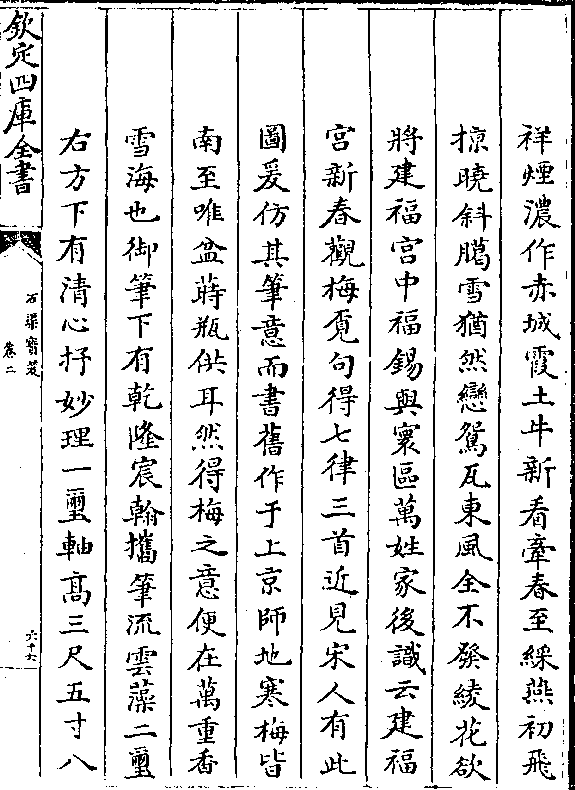 祥煙濃作赤城霞土牛新看牽春至綵燕初飛
掠曉斜臈雪猶然戀鴛瓦東風全不發綾花欲
將建福宫中福錫與寰區萬姓家後識云建福
宫新春觀梅覔句得七律三首近見宋人有此
圖爰仿其筆意而書舊作于上京師地寒梅皆
南至唯盆蒔瓶供耳然得梅之意便在萬重香
雪海也御筆下有乾隆宸翰攜筆流雲藻二璽
右方下有清心抒妙理一璽軸髙三尺五寸八
欽定四庫全書
石渠寳笈
卷二
六十六